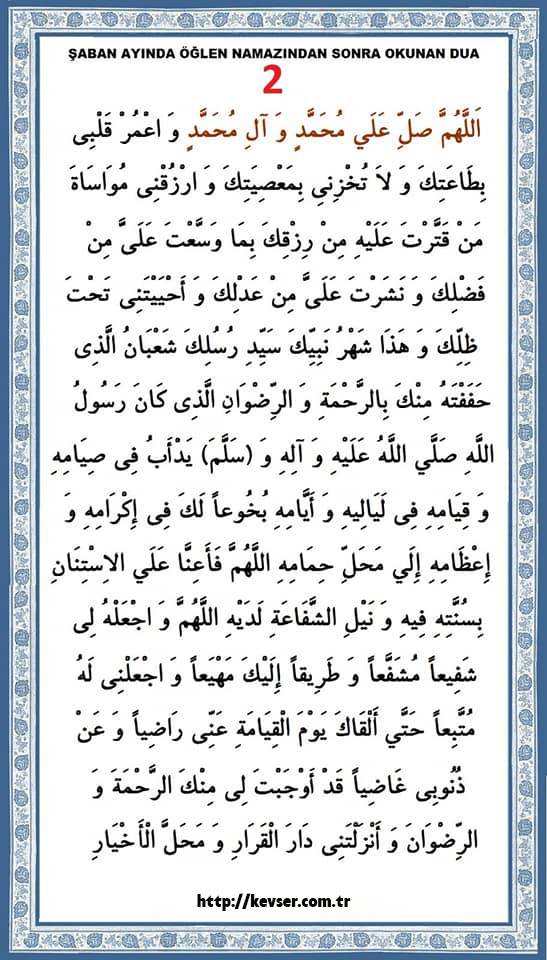 ŞABAN AYINDA ÖĞLEN NAMAZINDAN SONRA OKUNAN DUA
2
اَللَّهُمَّ صَلِّ عَلَي مُحَمَّدٍ وَ آلِ مُحَمَّدٍ وَ اعْمُرْ قَلْبِى
بِطَاعَتِكَ وَ لاَ تُخْزِنِى بِمَعْصِيَتِكَ وَ ارْزُقْنِى مُوَاسَاةَ
مَنْ قَتَّرْتَ عَلَيْهِ مِنْ رِزْقِكَ بِمَا وَسَّعْتَ عَلَىَّ مِنْ
فَضْلِكَ وَ نَشَرْتَ عَلَىَّ مِنْ عَدْلِكَ وَ أَحْيَيْتَنِى تَحْتَ
ظِلِّكَ وَ هَذَا شَهْرُ نَبِيِّكَ سَيِّدِ رُسُلِكَ شَعْبَانُ الَّذِى
حَفَفْتَهُ مِنْكَ بِالرَّحْمَةِ وَ الرِّضْوَانِ الَّذِى كَانَ رَسُولُ
اللَّهِ صَلَّي اللَّهُ عَلَيْهِ وَ آلِهِ وَ (سَلَّمَ) يَدْأَبُ فِى صِيَامِهِ
وَ قِيَامِهِ فِى لَيَالِيهِ وَ أَيَّامِهِ بُخُوعاً لَكَ فِى إِكْرَامِهِ وَ
إِعْظَامِهِ إِلَي مَحَلِّ حِمَامِهِ اللَّهُمَّ فَأَعِنَّا عَلَي الاِسْتِنَانِ
بِسُنَّتِهِ فِيهِ وَ نَيْلِ الشَّفَاعَةِ لَدَيْهِ اللَّهُمَّ وَ اجْعَلْهُ لِى
شَفِيعاً مُشَفَّعاً وَ طَرِيقاً إِلَيْكَ مَهْيَعاً وَ اجْعَلْنِى لَهُ
مُتَّبِعاً حَتَّي أَلْقَاكَ يَوْمَ الْقِيَامَةِ عَنِّى رَاضِياً وَ عَنْ
ذُنُوبِى غَاضِياً قَدْ أَوْجَبْتَ لِى مِنْكَ الرَّحْمَةَ وَ
الرِّضْوَانَ وَ أَنْزَلْتَنِى دَارَ الْقَرَارِ وَ مَحَلَّ الْأَخْيَارِ
http://kevser.com.tr